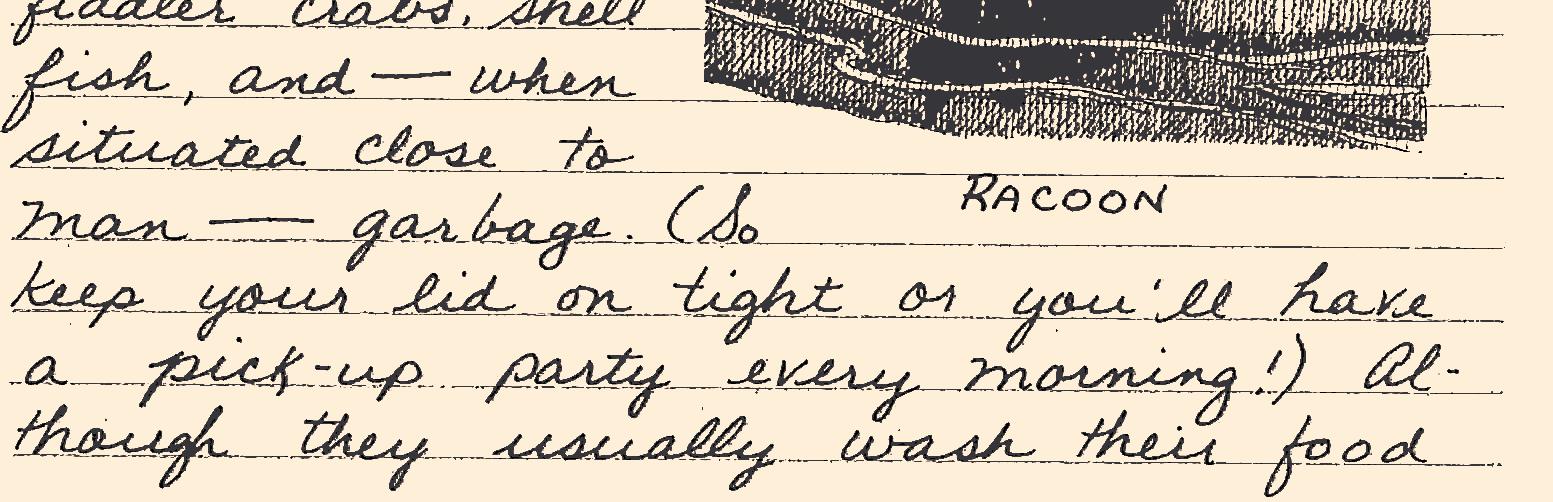 fiddler crabs, shell
fish, and — when
situated close to
RACOON
man — garbage. (So
keep your lid on tight or you'll have
a pick-up party every morning!) Al-
though they usually wash their food